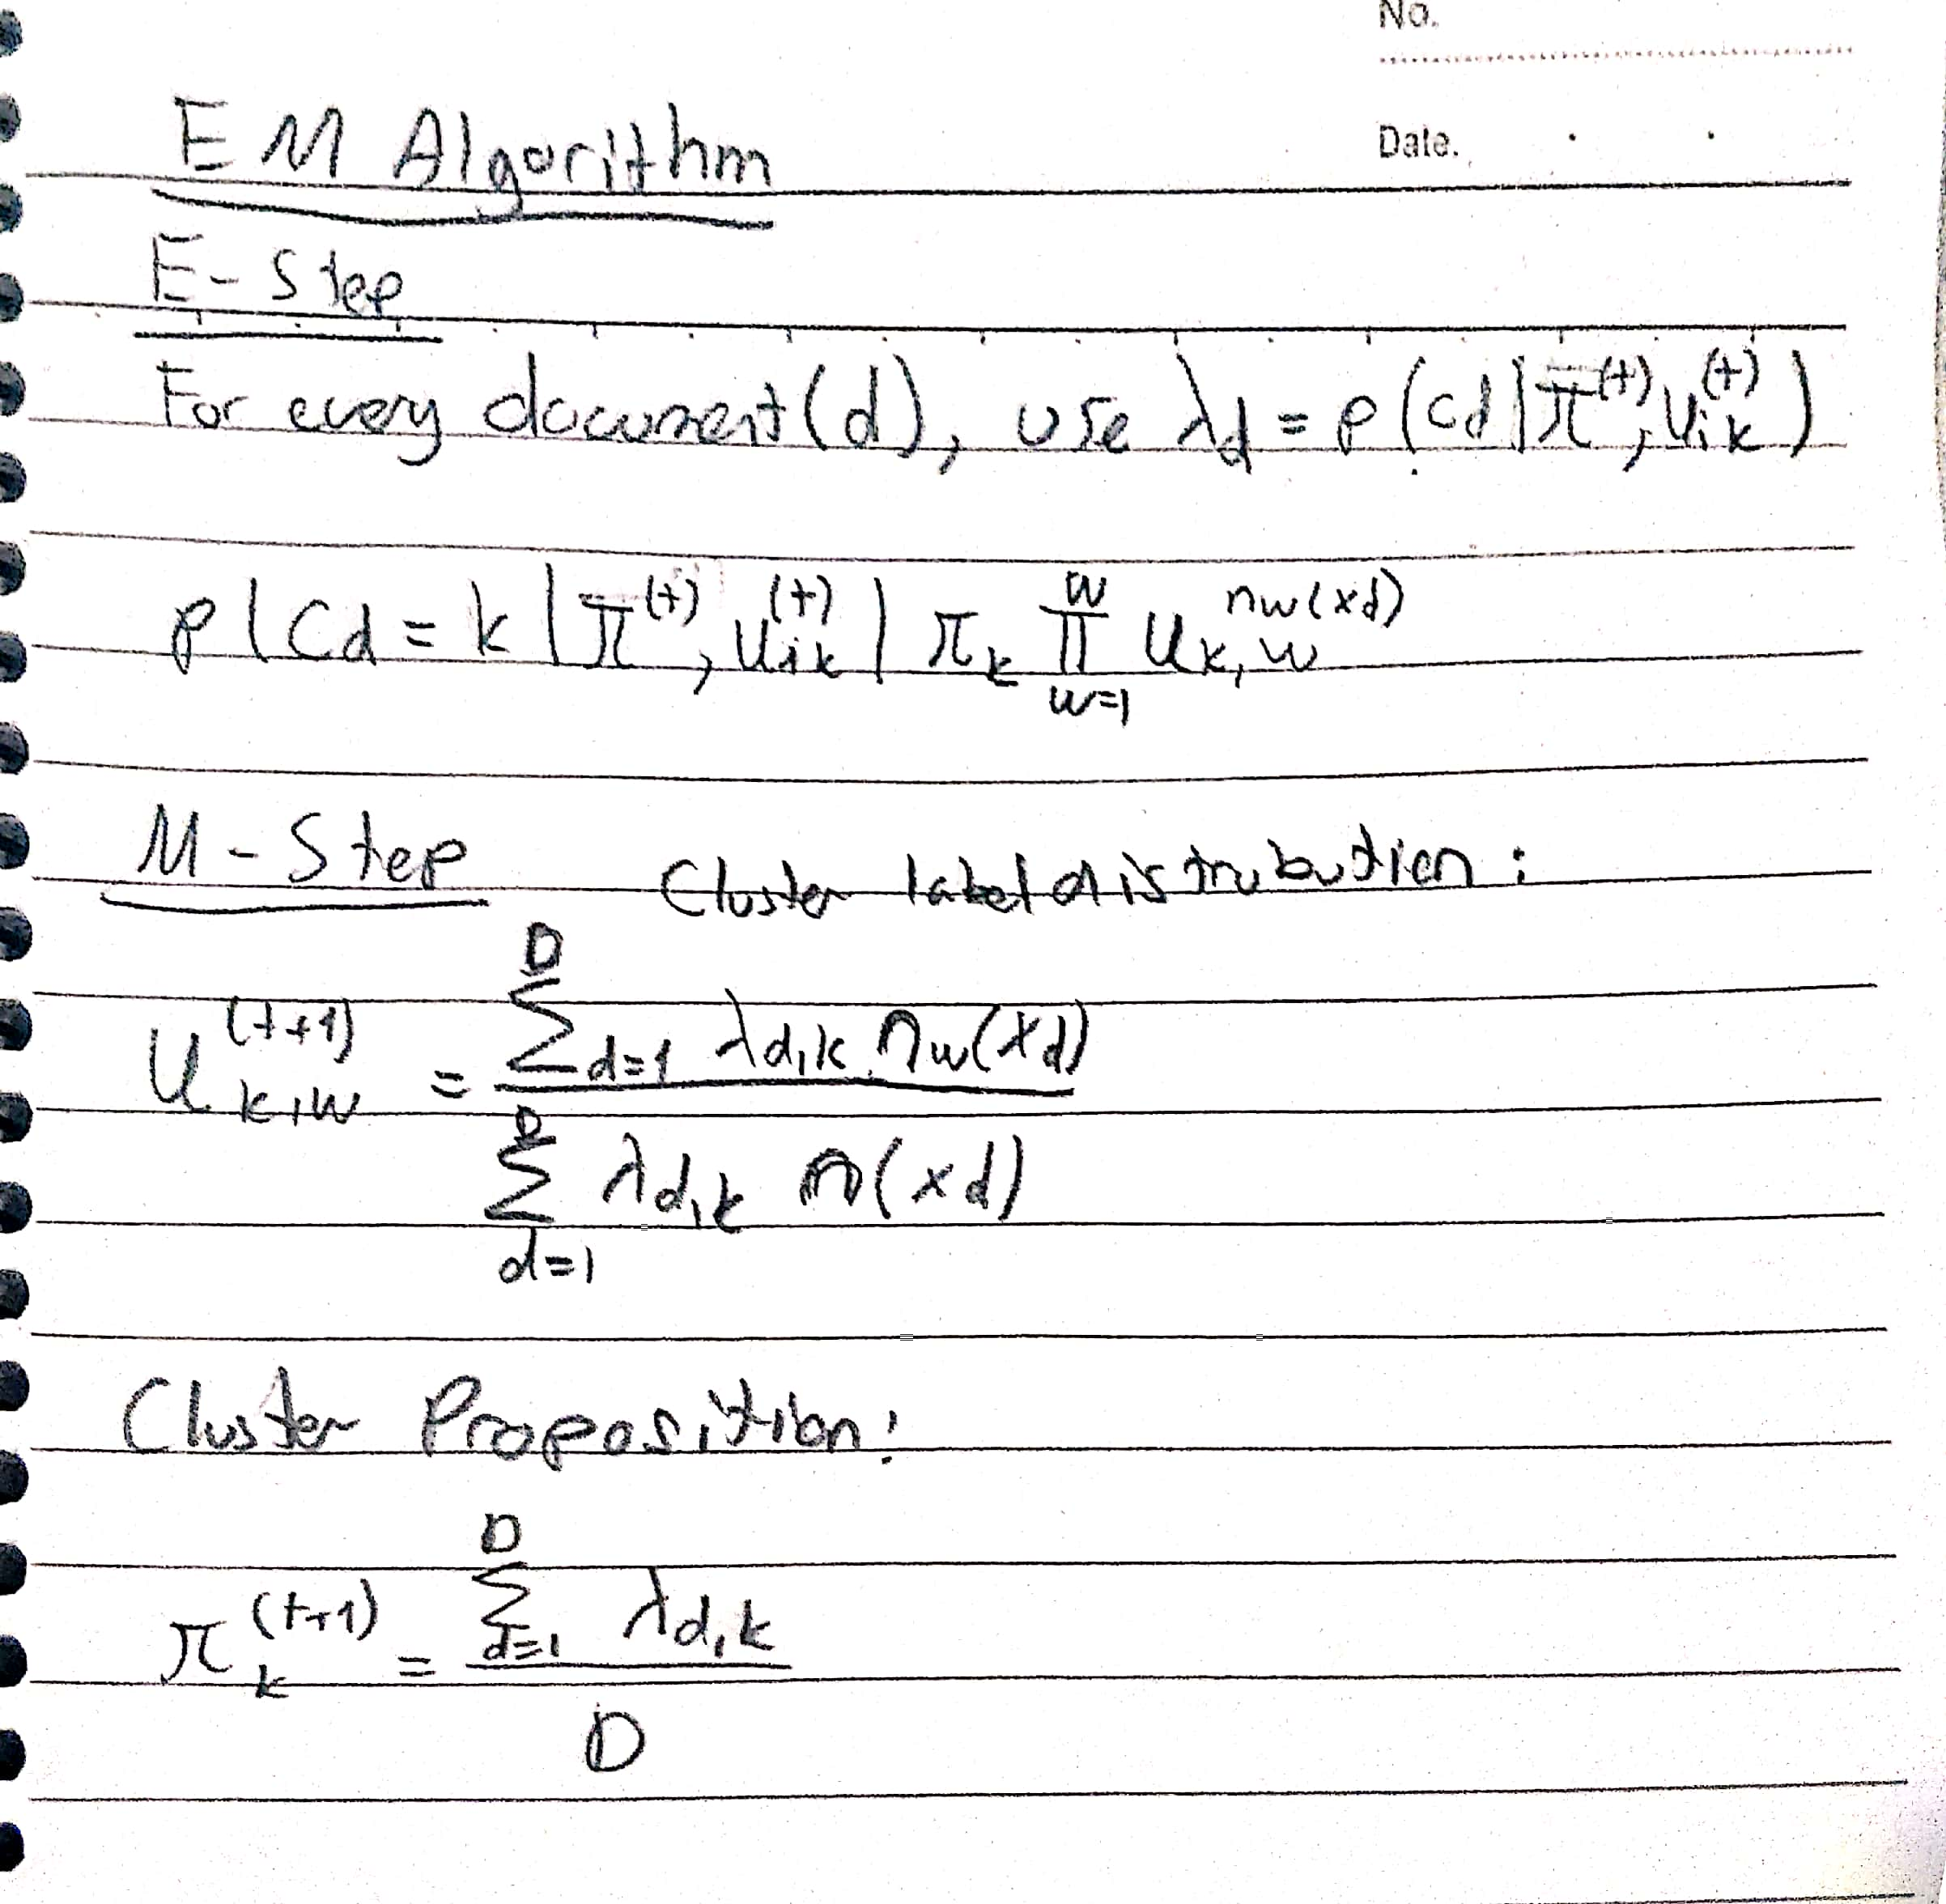 No.
Date.
EM Algorithm
E-Step
For every document(d), use λd = p(cd|π̅^(t), u_ik^(t))
p|Cd = k|π̅^(t), u_ik^(t)| π_k ∏_{w=1}^{W} u_{k,w}^{nw(xd)}
M-Step Cluster label distribution:
u_{k,w}^{(t+1)} = ∑_{d=1}^{D} λd,k nw(xd)
∑_{d=1}^{D} λd,k n(xd)
Cluster Proposition:
π_k^{(t+1)} = ∑_{d=1}^{D} λd,k
D